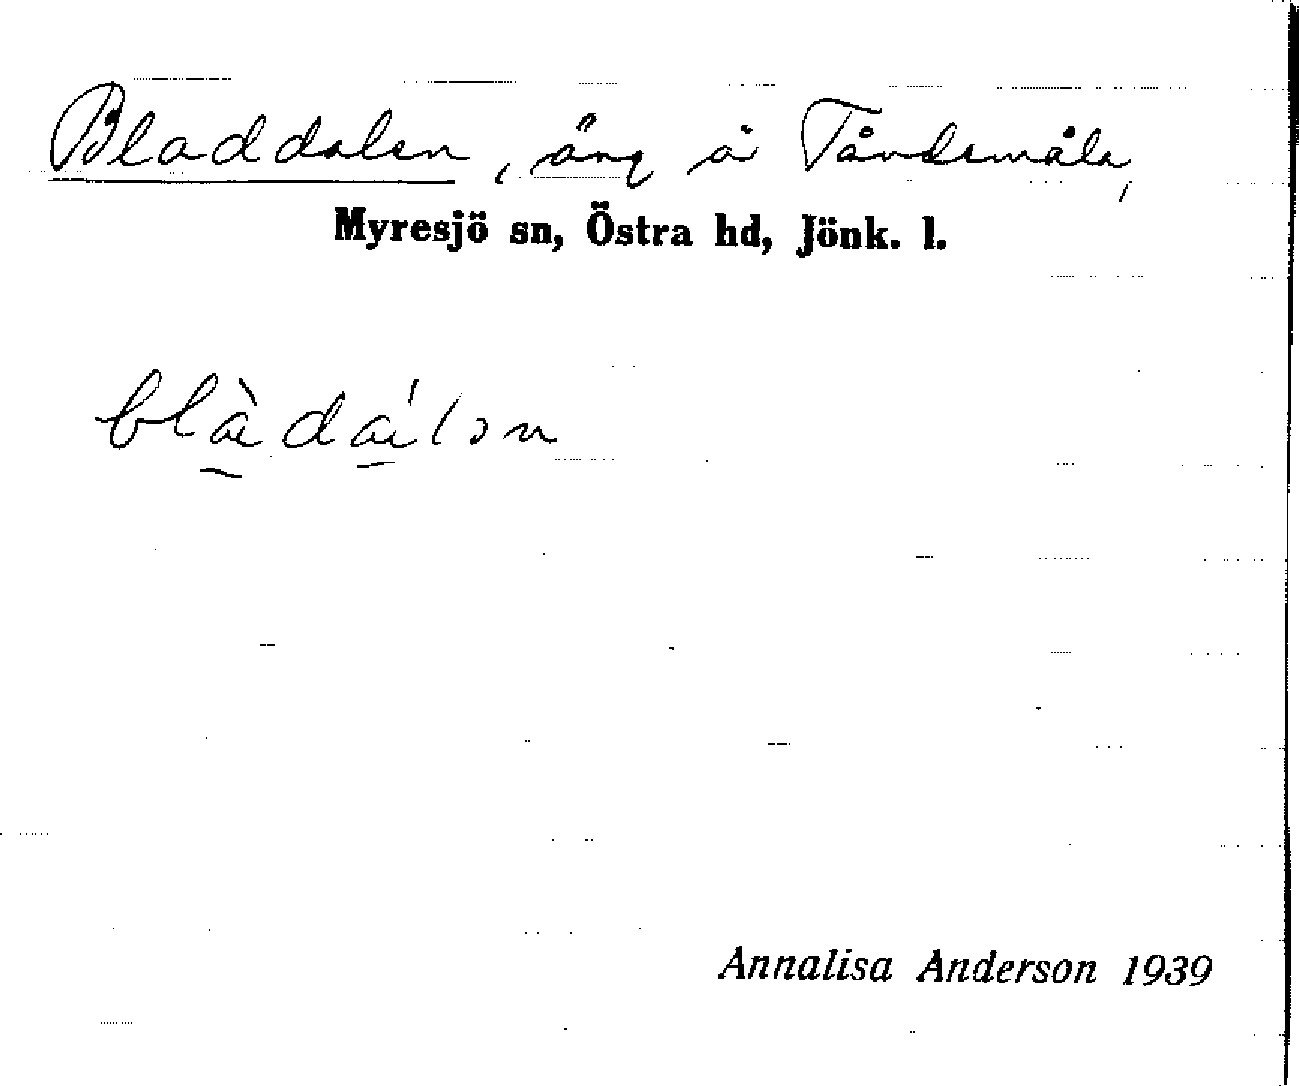 Bladdalen, äng å Tåndsmåla,
Myresjö sn, Östra hd, Jönk. l.
blàdálən
Annalisa Anderson 1939